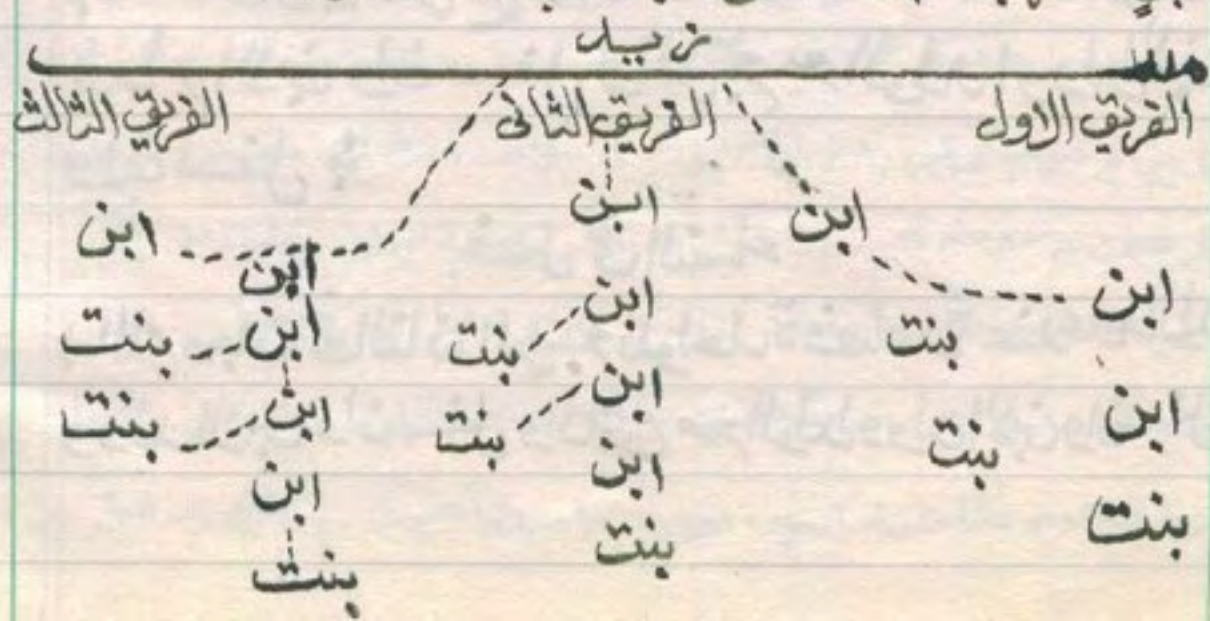 زيد
الفريق الاول الفريق الثانى الفريق الثالث
ابن ابن ابن
ابن بنت ابن بنت ابن
ابن بنت ابن بنت ابن بنت
بنت ابن ابن بنت
بنت ابن
بنت